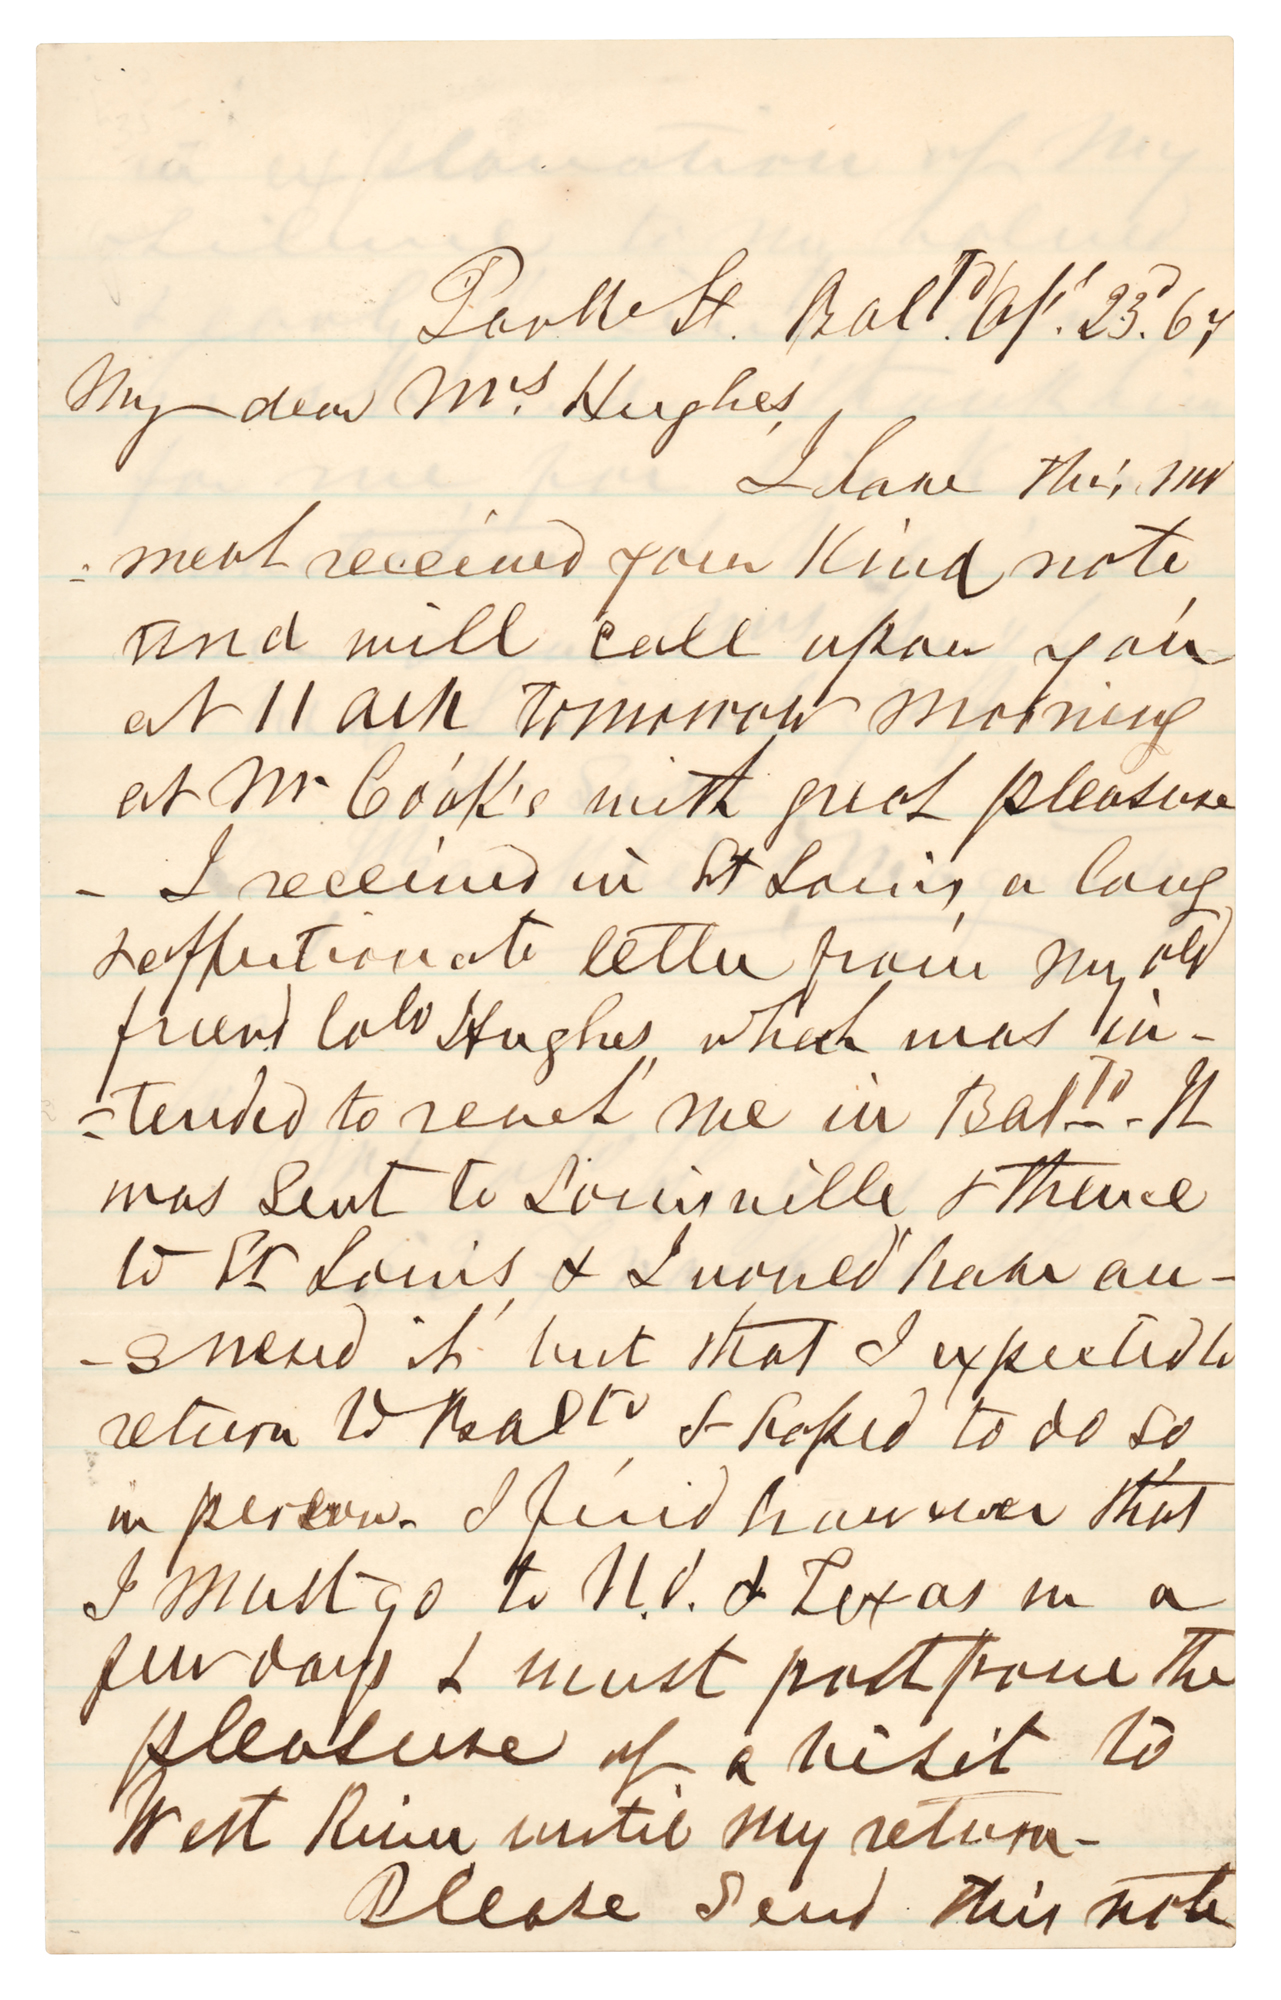 Park St. Balto. Ap'. 23d. 67
My dear Mrs. Hughes,
I have this mo
-ment received your kind note
and will call upon you
at 11 ock tomorrow morning
at Mr Cook's with great pleasure
- I received in St Louis, a long
& affectionate letter from my old
friend Colo Hughes, which was in-
-tended to reach me in Balto. - It
was sent to Louisville & thence
to St Louis, & I would have an-
-swered it but that I expected to
return to Balto & hoped to do so,
in person. I find however that
I must go to N.O. & Texas in a
few days & must postpone the
pleasure of a visit to
West River until my return -
Please send this note